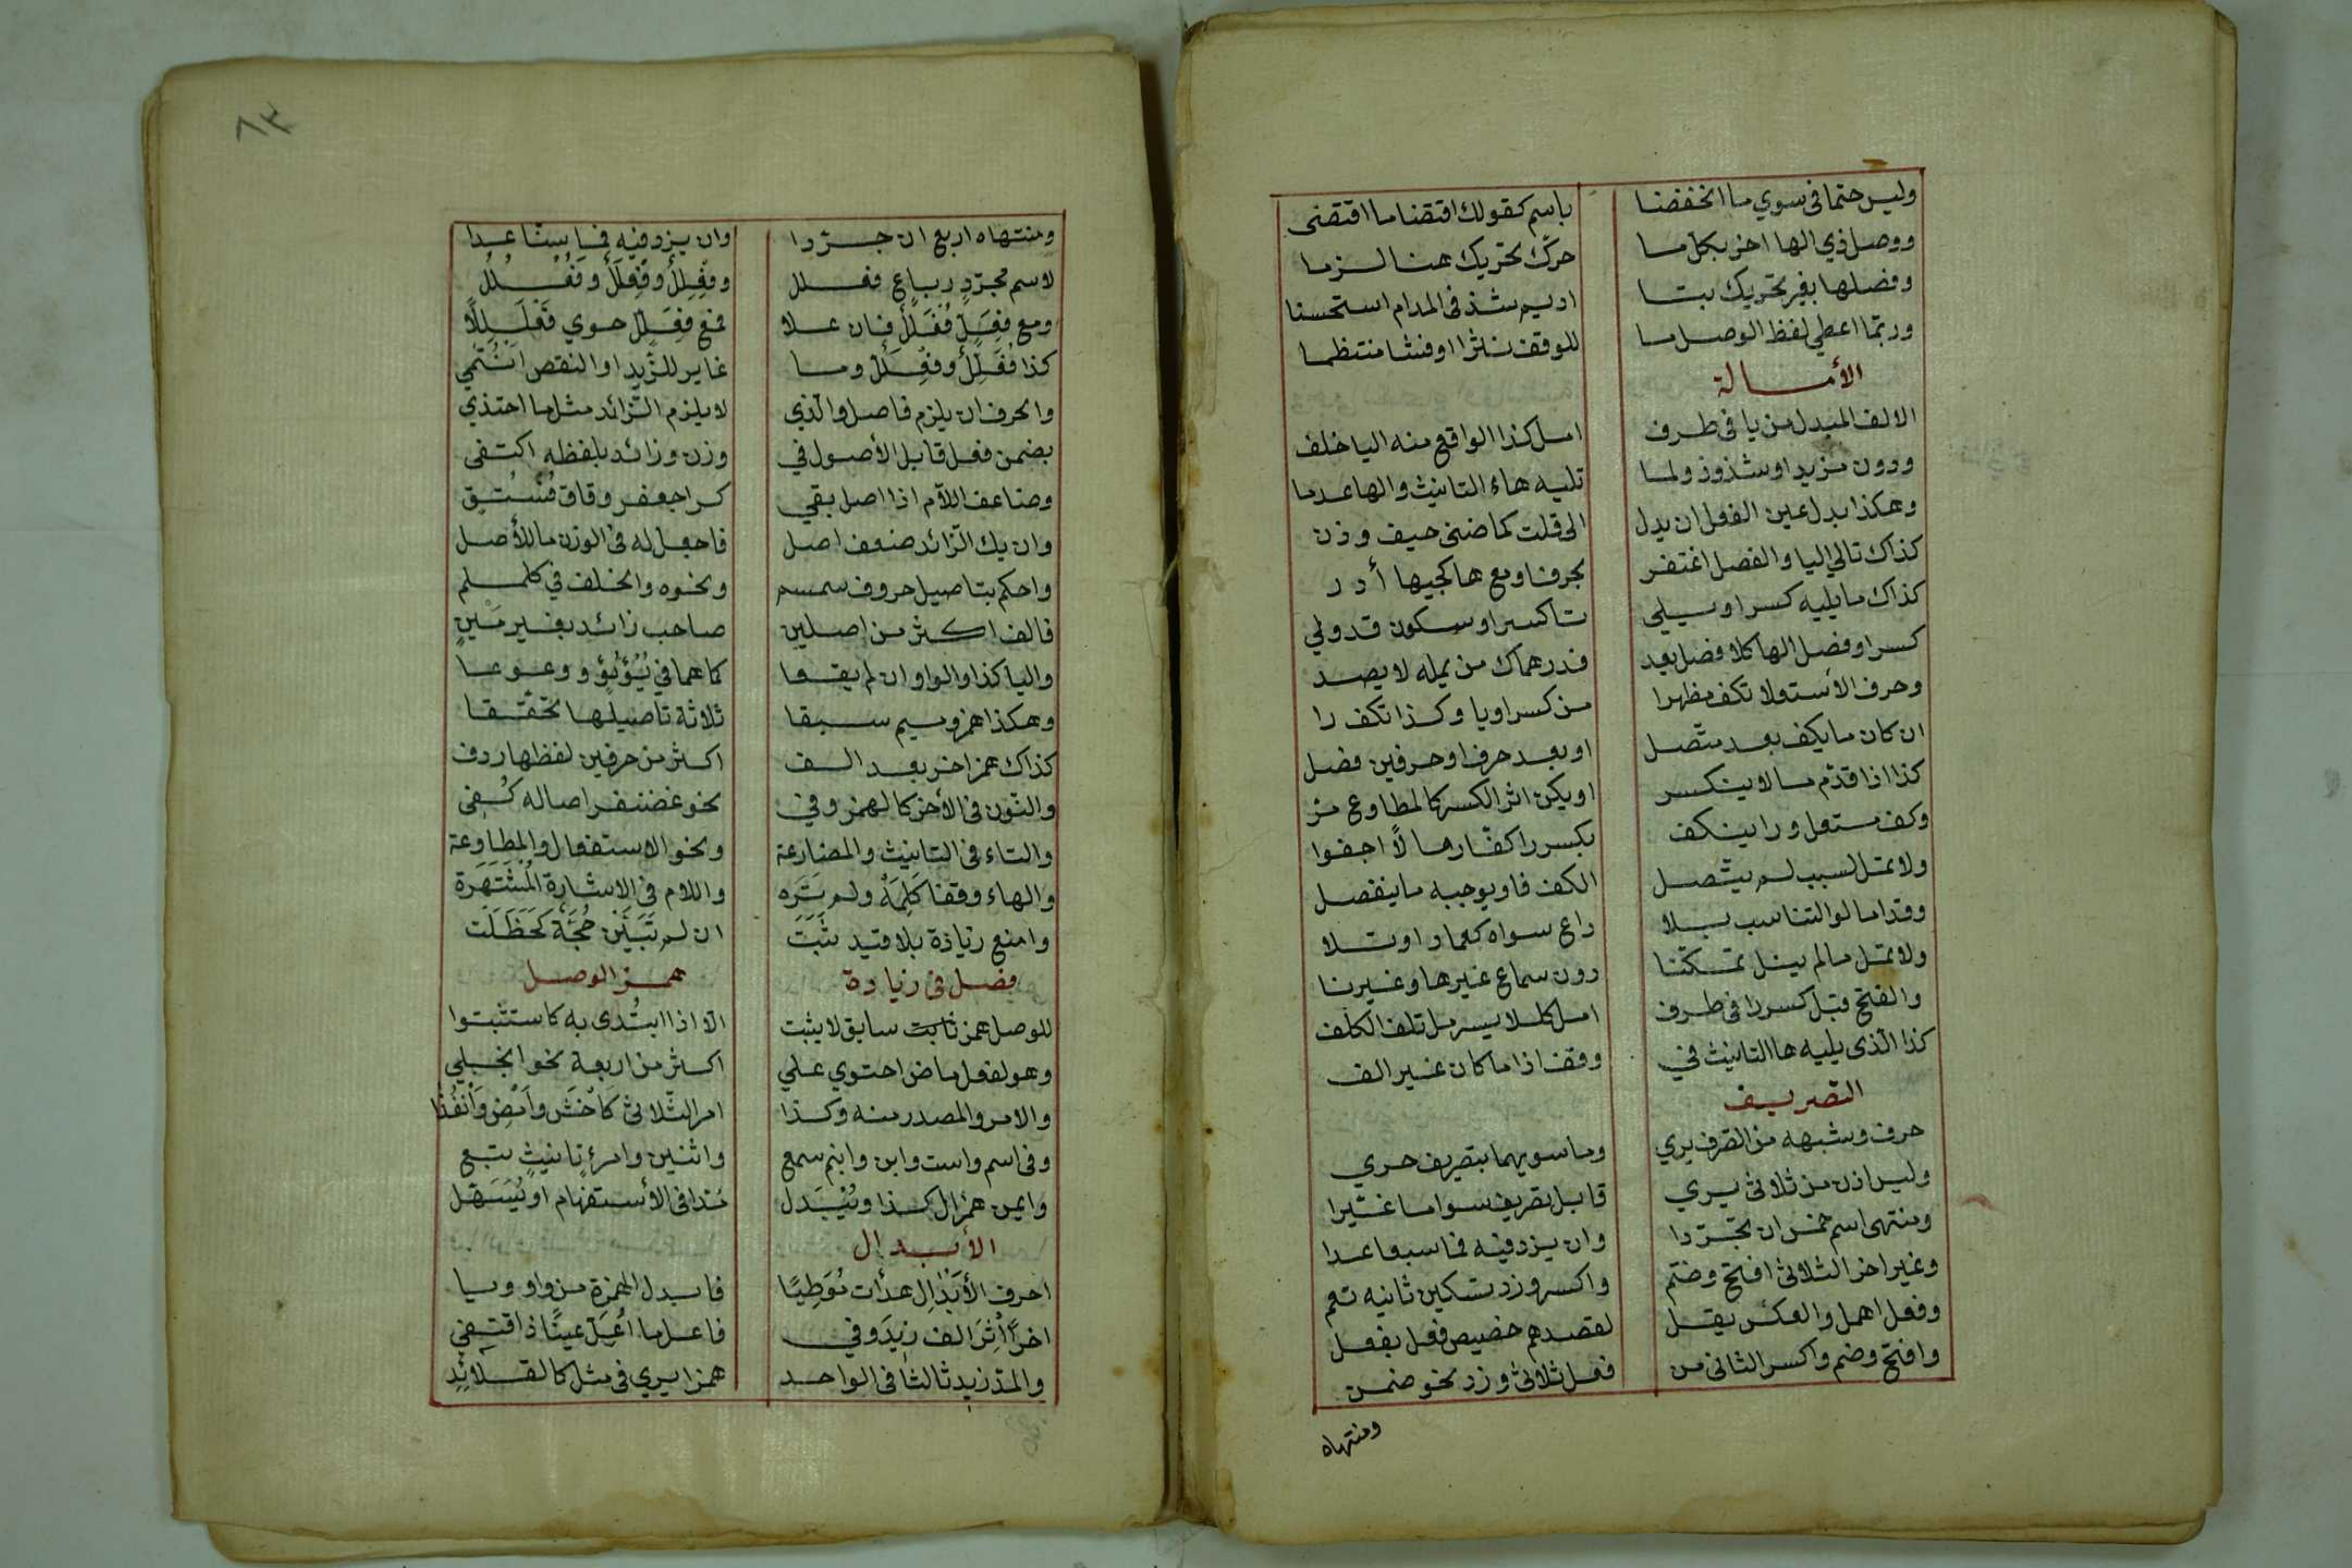 وليس حتما فى سوي ما انخفضا باسم كقولك اقتضا ما اقتضى
ووصل ذي الها اجز بكل ما حرك تحريك هنا لزما
ووصلها بغير تحريك بنا اديم شذ فى المدام استحسنا
وربما اعطي لفظ الوصل ما للوقف نثرا وفشا منتظما
الأمالة
الالف المبدل من يا فى طرف امل كذا الواقع منه اليا خلف
دون مزيد او شذوذ ولما تليه هاء التانيث والها عدما
وهكذا بدل عين الفعل ان يول الى قلت كماضى خيف ودن
كذاك تالي اليا والفصل اغتفر بحرف او مع ها كجيبها أدر
كذاك ما يليه كسر او يلي تا كسر او سكون قد ولي
كسرا وفصل الها كلا فصل يعد فدرهماك من يمله لا يصد
وحرف الأستعلا تكف مظهرا من كسر او يا وكذا تكف را
ان كان ما يكف بعد متصل او بعد حرف او حرفين فصل
كذا اذا قدم ما لا ينكسر او يكن اثر الكسر كالمطاوع مز
وكف مستعل ورا ينكف بكسر را كغارما لا اجفوا
ولا تمل لسبب لم يتصل الكف قد يوجبه ما ينفصل
وقد امالوا لتناسب بلا داع سواه كعمادا وتلا
ولا تمل ما لم ينل تمكنا دون سماع غيرها وغيرنا
والفتح قبل كسر را فى طرف امل كللايسر مل تلف الكلف
كذا الذى يليه ها التانيث فى وقف اذا ما كان غير الف
التصريف
حرف وشبهه من الصرف بري وما سويهما بتصريف حري
وليس ادن من ثلاثى يري قابل تصريف سوا ما غيرا
ومنتهى اسم خمس ان تجردا وان يزد فيه فما سبعا عدا
وغير اخر الثلاثى افتح وضم واكسر وزد تسكين ثانيه تعم
وفعل اهمل والعكس يقل لقصدهم تخصيص فعل بفعل
وافتح وضم واكسر الثانى من فعل ثلاثى وزد نحو ضمن
ومنتهاه
٨٣
ومنتهاه اربع ان جردا وان يزد فيه فما ستا عدا
لاسم مجرد رباع فعلل وفعلل وفعلل وفعلل
ومع فعل فعلل فان علا فمع فعلل حوي فعلللا
كذا فعلل وفعلل وما غاير للزيد او النقص انتمي
والحرف ان يلزم فاصل والذي لا يلزم الزائد مثل ما احتذي
بضمن فعل قابل الأصول في وزن وزائد بلفظه اكتفى
وضاعف اللام اذا اصل بقي كراجعفر وقاق فستق
وان يك الزائد ضعف اصل فاجعل له فى الوزن ما للأصل
واحكم بتاصيل حروف سمسم ونحوه والخلف في كلملم
فالف اكثر من اصلين صاحب زائد بغير مين
واليا كذا والواو ان لم يقعا كما هما في يؤيؤ ووعوعا
وهكذا همز وميم سبقا ثلاثة تاصيلها تحققا
كذاك همز اخر بعد الف اكثر من حرفين لفظها ردف
والنون فى الأخر كالهمز وفي نحو غضنفر اصاله كفى
والتاء فى التانيث والمضارعة ونحو الاستفعال والمطاوعة
والهاء وقفا كلمه ولم تره واللام فى الاشارة المشتهرة
وامنع زيادة بلا قيد ثبت ان لم تبين حجة كحظلت
فصل فى زيادة همز الوصل
للوصل همز ثابت سابق لا يثبت الا اذا ابتدى به كاستثبتوا
وهو لفعل ماض احتوي علي اكثر من اربعة نحو انجلي
والامر والمصدر منه وكذا امر الثلاثى كاخش وامض وانفذا
وفى اسم واست وابن وابنم سمع واثنين وامرء وتانيث تبع
وايمن همز ال كذا ويبدل مدا فى الأستفهام او يسهل
الأبدال
احرف الأبدال هدأت موطيا فابدل الهمزة من واو ويا
اخرا اثر الف زيد وفي فاعل ما اعل عينا ذا اقتفي
والمد زيد ثالثا فى الواحد همزا يري فى مثل كالقلائد